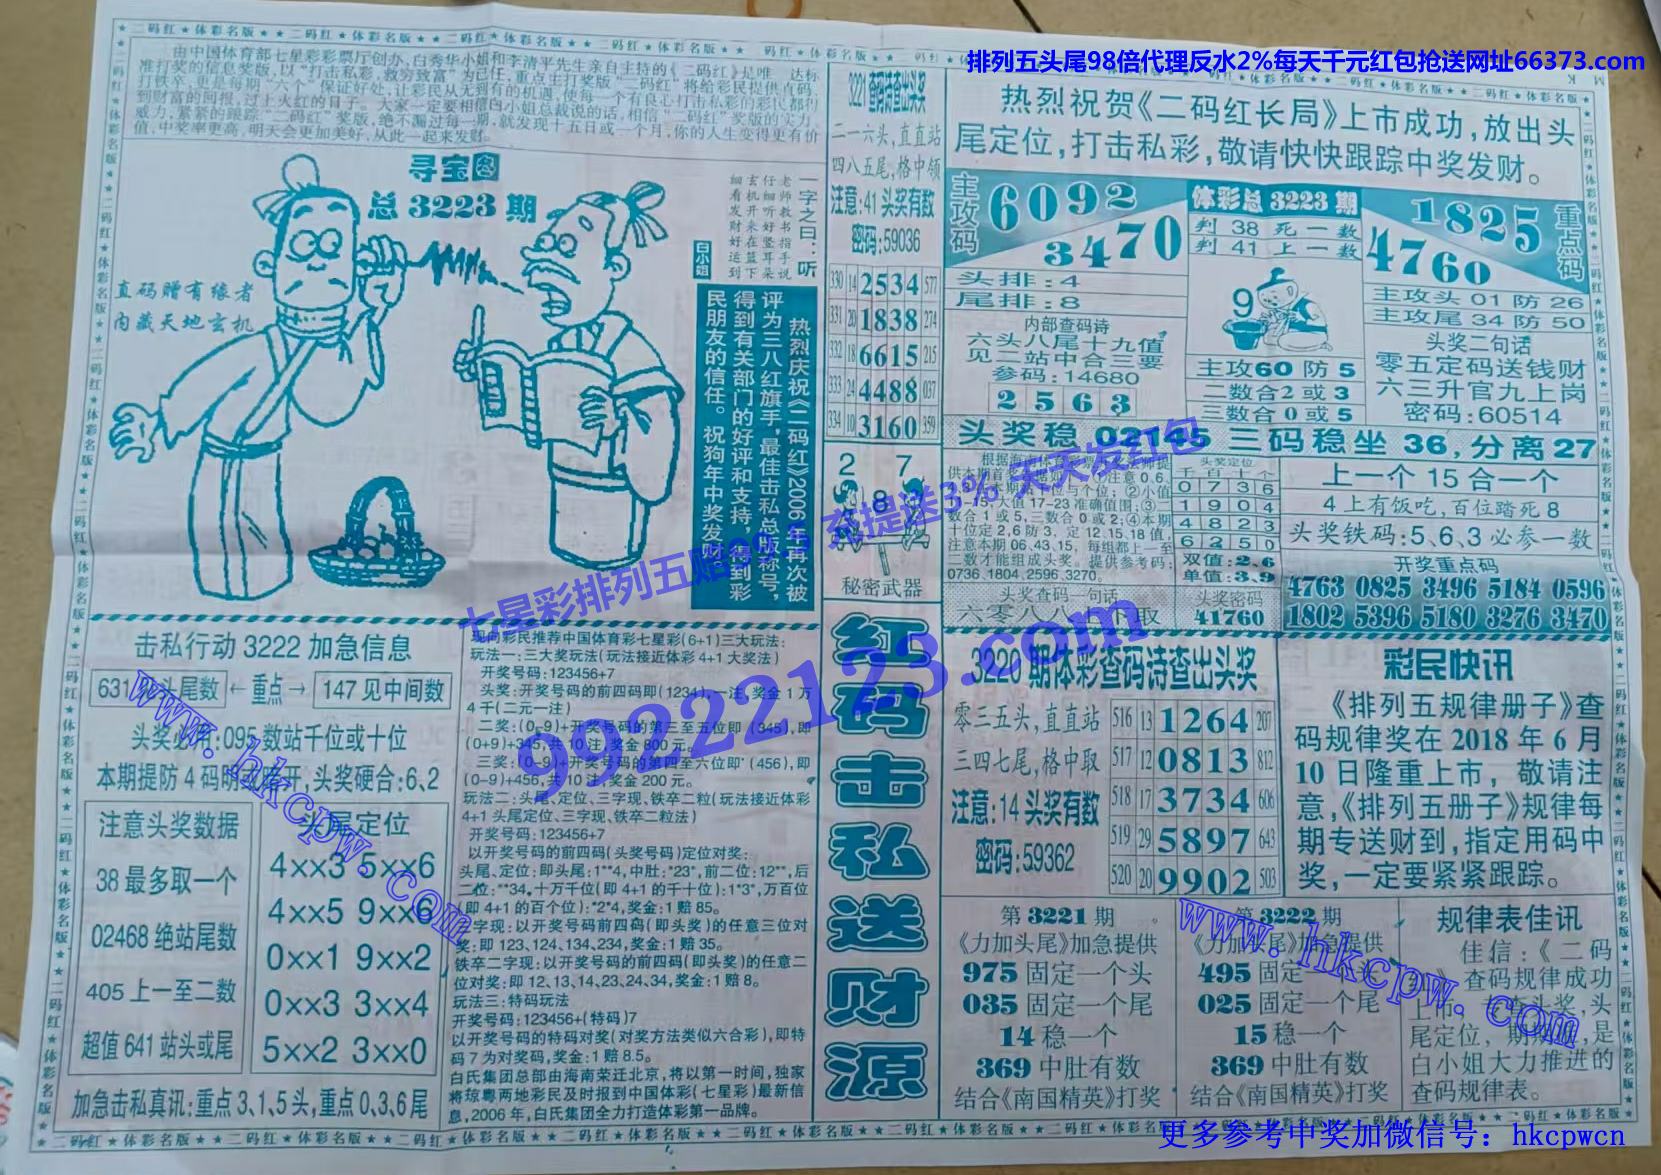 排列五头尾98倍代理反水2%每天千元红包抢送网址66373.com
由中国体育部七星彩彩票厅创办,白秀华小姐和李清平先生亲自主持的《二码红》是唯一达标
准打奖的信息奖版,以“打击私彩,救穷致富”为己任,重点主打奖版“二码红”将给彩民提供直码、
打铁卒,更是每期“六个”保证好处,让彩民从无到有的机遇,使每一个有良心打击私彩的彩民都得
到财富的回报,过上火红的日子。大家一定要相信白小姐总裁说的话,相信“二码红”奖版的实力、
威力,紧紧的跟踪“二码红”奖版,绝不漏过每一期,就发现十五日或一个月,你的人生变得更有价
值,中奖率更高,明天会更加美好,从此一起来发财。
寻宝图
总 3223 期
直码赠有缘者
内藏天地玄机
一字之曰:听
老师教书指手说
仔细听好竖耳朵
玄机开来在篮下
细看发财好运到
白小姐
热烈庆祝《二码红》2006年再次被
评为三八红旗手,最佳击私总版称号,
得到有关部门的好评和支持,得到彩
民朋友的信任。祝狗年中奖发财
3221查码诗查出头奖
二一六头,直直站
四八五尾,格中领
注意:41头奖有数
密码:59036
330 14 2534 577
331 20 1838 274
332 18 6615 215
333 24 4488 037
334 10 3160 359
2 7
8
秘密武器
热烈祝贺《二码红长局》上市成功,放出头
尾定位,打击私彩,敬请快快跟踪中奖发财。
主攻码
6092
3470
体彩总 3223 期
判 38 死一数
判 41 上一数
9
1825
4760
重点码
头排:4
尾排:8
内部查码诗
六头八尾十九值
见二站中合三要
参码:14680
2 5 6 3
主攻60防5
二数合2或3
三数合0或5
主攻头 01 防 26
主攻尾 34 防 50
头奖二句话
零五定码送钱财
六三升官九上岗
密码:60514
头奖稳 02145 三码稳坐 36,分离27
头奖定位
千 百 十 个
0 7 3 6
1 9 0 4
4 8 2 3
6 2 5 0
双值:2、6
单值:3、9
注意本期 06、43、15,每组都上一至
二数才能组成头奖。提供参考码:
0736、1804、2596、3270。
头奖查码一句话
六零八八 取
头奖密码
41760
上一个 15 合一个
4上有饭吃,百位踏死8
头奖铁码:5、6、3必参一数
开奖重点码
4763 0825 3496 5184 0596
1802 5396 5180 3276 3470
七星彩排列五赔99.5 充提送3% 天天发红包
9922123.com
击私行动 3222 加急信息
631 头尾数 ←重点→ 147 见中间数
头奖必杀:095 数站千位或十位
本期提防4码明或暗开,头奖硬合:6、2
注意头奖数据
38 最多取一个
02468 绝站尾数
405 上一至二数
超值 641 站头或尾
头尾定位
4××3 5××6
4××5 9××6
0××1 9××2
0××3 3××4
5××2 3××0
加急击私真讯:重点3、1、5头,重点0、3、6尾
现向彩民推荐中国体育彩七星彩(6+1)三大玩法:
玩法一:三大奖玩法(玩法接近体彩4+1大奖法)
开奖号码:123456+7
头奖:开奖号码的前四码即(1234)一注,奖金1万
4千(二元一注)
二奖:(0-9)+开奖号码的第三至五位即(345),即
(0+9)+345,共10注,奖金800元。
三奖:(0-9)+开奖号码的第四至六位即(456),即
(0-9)+456,共10注,奖金200元。
玩法二:头尾、定位、三字现、铁卒二粒(玩法接近体彩
4+1头尾定位、三字现、铁卒二粒法)
开奖号码:123456+7
以开奖号码的前四码(头奖号码)定位对奖:
头尾、定位:即头尾:1**4,中肚:*23*,前二位:12**,后
二位:**34,十万千位(即4+1的千十位):1*3*,万百位
(即4+1的百个位):*2*4,奖金:1赔85。
三字现:以开奖号码前四码(即头奖)的任意三位对
奖:即123、124、134、234,奖金:1赔35。
铁卒二字现:以开奖号码的前四码(即头奖)的任意二
位对奖:即12、13、14、23、24、34,奖金:1赔8。
玩法三:特码玩法
开奖号码:123456+(特码)7
以开奖号码的特码对奖(对奖方法类似六合彩),即特
码7为对奖码,奖金:1赔8.5。
白氏集团总部由海南荣迁北京,将以第一时间,独家
将琼粤两地彩民及时报到中国体彩(七星彩)最新信
息,2006年,白氏集团全力打造体彩第一品牌。
红码击私送财源
3220期体彩查码诗查出头奖
零三五头,直直站
三四七尾,格中取
注意:14头奖有数
密码:59362
516 13 1264 207
517 12 0813 812
518 17 3734 606
519 29 5897 643
520 20 9902 503
彩民快讯
《排列五规律册子》查
码规律奖在2018年6月
10日隆重上市,敬请注
意,《排列五册子》规律每
期专送财到,指定用码中
奖,一定要紧紧跟踪。
第 3221 期
《力加头尾》加急提供
975 固定一个头
035 固定一个尾
14 稳一个
369 中肚有数
结合《南国精英》打奖
第 3222 期
《力加头尾》加急提供
495 固定一个头
025 固定一个尾
15 稳一个
369 中肚有数
结合《南国精英》打奖
规律表佳讯
佳信:《二码
查码规律成功
上市,查头奖,头
尾定位,期期,是
白小姐大力推进的
查码规律表。
www.hkcpw.com
www.hkcpw.com
更多参考中奖加微信号:hkcpwcn